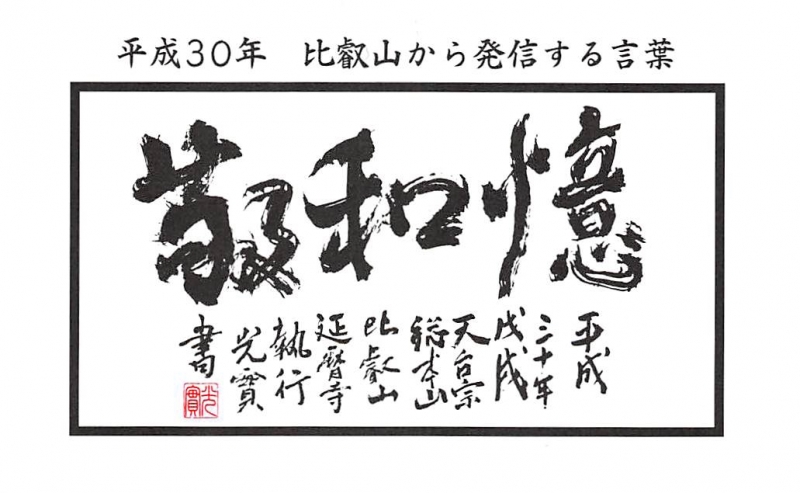 平成30年 比叡山から発信する言葉
憶和敬
平成
三十年
戊戌
天台宗
総本山
比叡山
延暦寺
執行
光實
書
光實